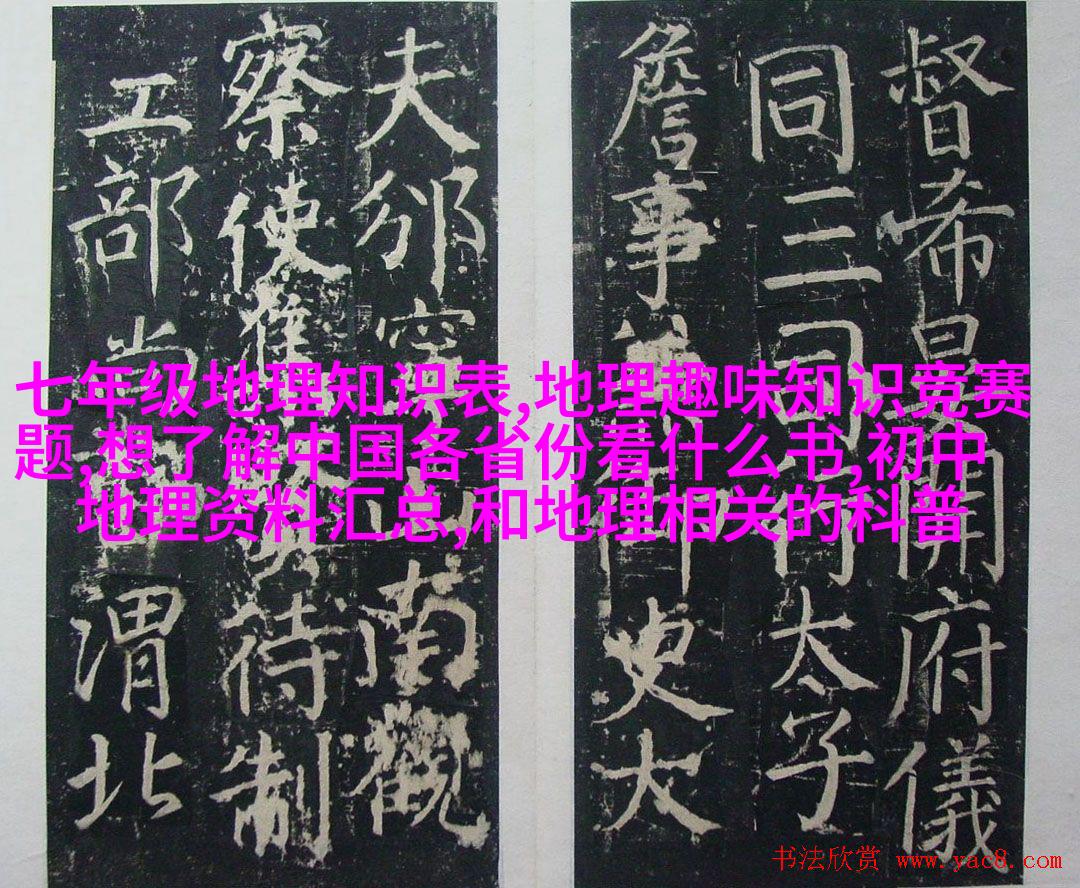 七年级地理知识表,地理趣味知识竞赛
题,想了解中国各省份看什么书,初中
地理资料汇总,和地理相关的科普
督希開府儀
同三司太子
詹事史大
夫邠南觀
察使待制
工部尚渭北
书法欣赏 www.yac8.com